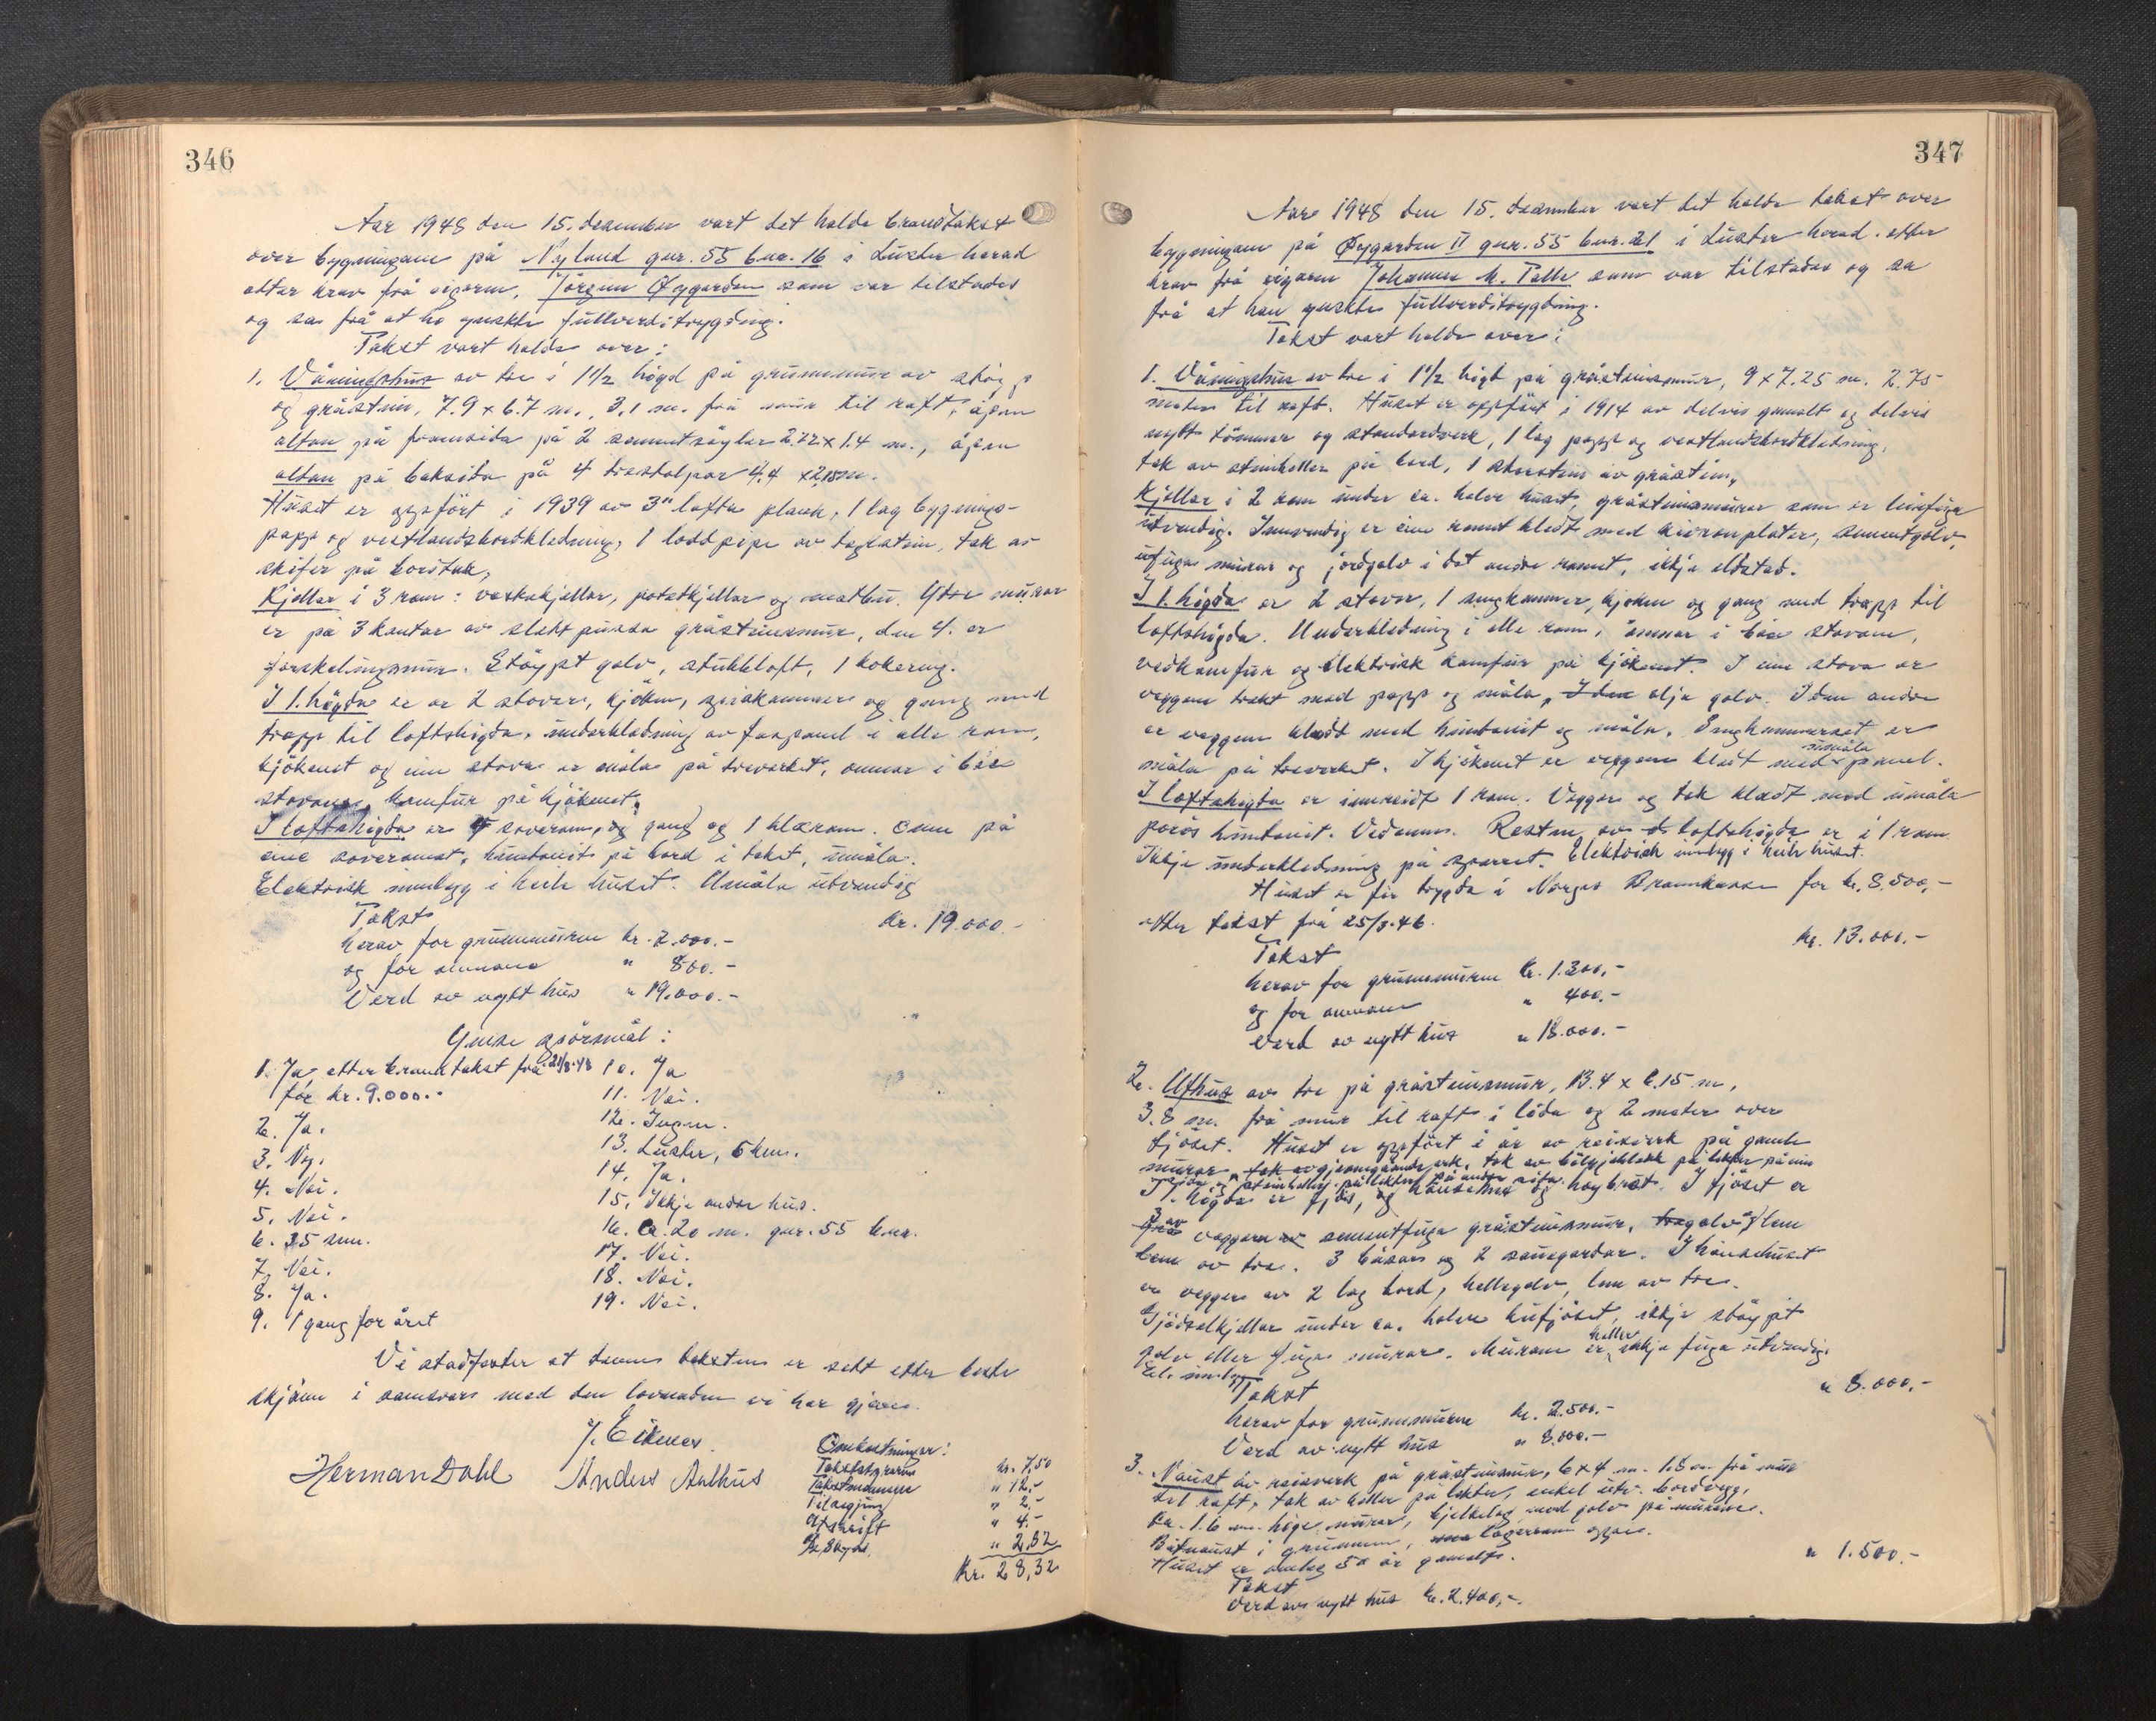 346
Aar 1948 den 15. desember vart det halde brandtakst
over bygningane på Nyland gnr. 55 bnr. 16 i Luster herad
etter krav frå eigaren, Jörgen Øygarden som var tilstades
og sa frå at ho ynskte fullverditrygding.
Takst vart halde over:
1. Våningshus av tre i 1 1/2 högd på grunnmur av
og gråstein, 7.9 x 6.7 m., 3,1 m. frå mur til raft, åpen
altan på framsida på 2 sementsöyler 2.22 x 1.4 m., åpen
altan på baksida på 4 trestolpar 4.4 x 2,15 m.
Huset er oppfört i 1939 av 3" lafta plank, 1 lag bygnings-
papp og vestlandsbordkledning, 1 loddpipe av teglstein, tak av
skifer på bordtak,
Kjellar i 3 rom: vaskekjellar, potetkjellar og matbu. Ytre murar
er på 3 kantar av slett pussa gråsteinsmur, den 4. er
forskalingsmur. Stöypt golv, stukkloft, 1 kokering.
I 1. högda er er 2 stover, kjöken, spiskammers og gang med
trapp til loftshögda, underkledning av faspanel i alle rom,
kjökenet og ein stova er måla på treverket, omnar i båe
stovone, komfur på kjökenet.
I loftshögda er 4 soverom, og gang og 1 klerom. Omn på
eine soverommet, huntonit på bord i taket, umåla.
Elektrisk innlegg i heile huset. Umåla utvendig
Takst kr. 19.000.-
herav for grunnmuren kr. 2.000.-
og for omnane " 800.-
Verd av nytt hus " 19.000.-
Ymse spörsmål:
1. Ja etter branntakst frå 21/8-43
for kr. 9.000.-
2. Ja.
3. Nei.
4. Nei.
5. Nei.
6. 35 mm.
7. Nei.
8. Ja.
9. 1 gang for året
10. Ja
11. Nei.
12. Ingen.
13. Luster, 6 km.
14. Ja.
15. Ikkje andre hus.
16. Ca. 20 m. gnr. 55 bnr.
17. Nei.
18. Nei.
19. Nei.
Vi stadfester at denne taksten er sett etter beste
skjönn i samsvar med den lovnaden vi har gjeve.
J. Eikenes.
Herman Dahl Anders Aulhus
Omkostningar:
Takststyraren kr. 7,50
Takstmennene " 12.-
Tilsegjing " 2.-
Utskrift " 4.-
Skyss. " 2,82
Kr. 28,32
347
Aar 1948 den 15. desember vart det halde takst over
bygningane på Øygarden II gnr. 55 bnr. 21 i Luster herad. etter
krav frå eigaren Johannes M. Talle som var tilstades og sa
frå at han ynskte fullverditrygding.
Takst vart halde over:
1. Våningshus av tre i 1 1/2 högd på gråsteinsmur, 9 x 7.25 m. 2.75
meter til raft. Huset er oppfört i 1914 av delvis gamalt og delvis
nytt tömmer og standardverk, 1 lag papp og vestlandsbordkledning,
tak av steinheller på bord, 1 skorstein av gråstein,
Kjellar i 2 rom under ca. halve huset, gråsteinsmurar som er
utvendig. Innvendig er eine romet kledt med plater, sementgolv,
ufuga murar og jordgolv i det andre romet, ikkje eldstad.
I 1. högda er 2 stover, 1 sengkammer, kjöken og gang med trapp til
loftshögda. Underkledning i alle rom, omnar i båe stovone,
vedkomfur og elektrisk komfur på kjökenet. I eine stova er
veggene trekt med papp og måla, I den olja golv. I den andre
er veggene kledt med huntonit og måla. Sengkammerset er
måla på treverket. I kjökenet er veggene kledt med umåla panel.
I loftshögda er innreidt 1 rom. Vegger og tak kledt med umåla
porös huntonit. Vedomn. Resten av loftshögda er i 1 rom
Ikkje underkledning på sperret. Elektrisk innlegg i heile huset.
Huset er för trygda i Norges Brannkasse for kr. 8.500,-
etter takst frå 25/3-46.
Takst kr. 13.000.-
herav for grunnmuren kr. 1.300,-
og for omnane " 400.-
Verd av nytt hus " 18.000.-
2. Uthus av tre på gråsteinsmur, 13.4 x 6.15 m,
3.8 m. frå mur til raft i löda og 2 meter over
fjöset. Huset er oppfört i år av reisverk på gamle
murar, tak av bölgjeblekk på lekter på ein
side og steinheller på lekter på andre sida.
I 1. högda er fjös, og hönsehus og höybrot. I fjöset er
3 av veggene sementfuga gråsteinsmur, golv og lem
bem av tre. 3 båsar og 2 sauegardar. I hönsehuset
er veggene av 2 lag bord, hellegolv, lem av tre.
Gjödselkjellar under ca. halve kufjöset, ikkje stöypt
golv eller fuga murar. Murane er heller ikkje fuga utvendig.
El. innlegg
Takst " 8.000.-
herav for grunnmurane kr. 2.500.-
Verd av nytt hus " 8.000.-
3. Naust av reisverk på gråsteinsmur, 6 x 4 m. 1.8 m. frå mur
til raft, tak av heller på lekter, enkel utv. bordvegg,
Ca. 1.6 m. höge murar, bjelkelag med golv på murane.
Båtnaust i grunnen, lagerrom oppe.
Huset er omlag 50 år gamalt.
Takst " 1.500.-
Verd av nytt hus kr. 2.400,-